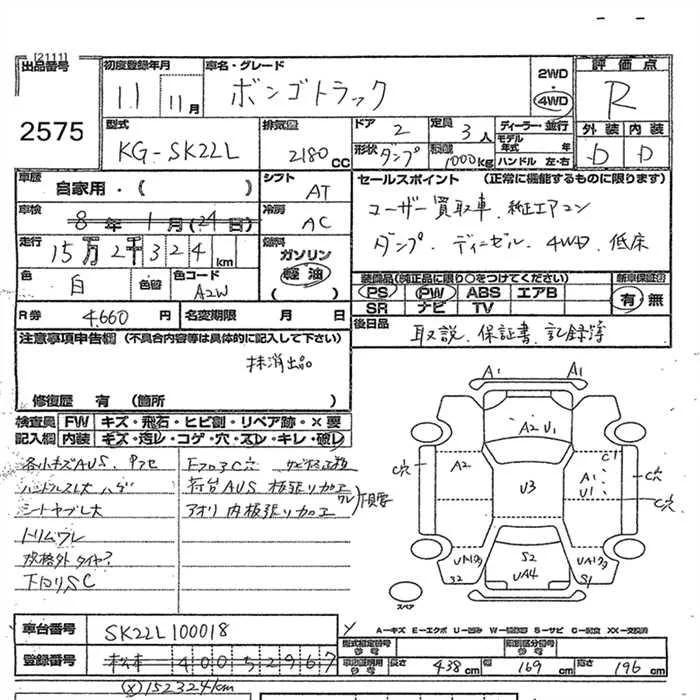 [2111]
出品番号
2575
初度登録年月
11 11月
車名・グレード
ボンゴトラック
2WD
4WD
評価点
R
型式
KG-SK22L
排気量
2180 CC
ドア
2
形状
ダンプ
定員
3人
積載
1000kg
ディーラー・並行
モデル年式 年
ハンドル 左・右
外装 内装
D D
車歴
自家用・( )
シフト
AT
セールスポイント (正常に機能するものに限ります)
ユーザー買取車、純正エアコン
ダンプ、ディーゼル、4WD、低床
車検
8年1月(24日)
冷房
AC
走行
15万2千324km
燃料
ガソリン
軽油
( )
色
白
色替
色コード
A2W
装備品(純正品に限り○をつけてください)
PS PW ABS エアB
SR ナビ TV
新車保証書
有・無
R券 4,660円
名変期限 月 日
後日品
取説、保証書、記録簿
注意事項申告欄 (不具合内容等は具体的に記入して下さい)
抹消出品
修復歴 有 (箇所 )
検査員記入欄
FW キズ・飛石・ヒビ割・リペア跡・×要
内装 キズ・汚レ・コゲ・穴・スレ・キレ・破レ
各小キズAUS、
シートヤブレ大
トリムワレ
規格外タイヤ?
下回りSC
荷台AUS 板張り加工
アオリ内板張り加工
A1 A1
A2 U1
A2
U3
C穴
C1
A1
U1
C穴
C穴
S2
S2
UA4
S1
スペア
A-キズ E-エクボ U-凹み W-補修跡 S-サビ C-腐食 XX-交換済
車台番号
SK22L100018
登録番号
松本 400 5 2967
型式指定番号
参考
類別区分番号
参考
長さ 438cm
幅 169cm
高さ 196cm
(X)152324km